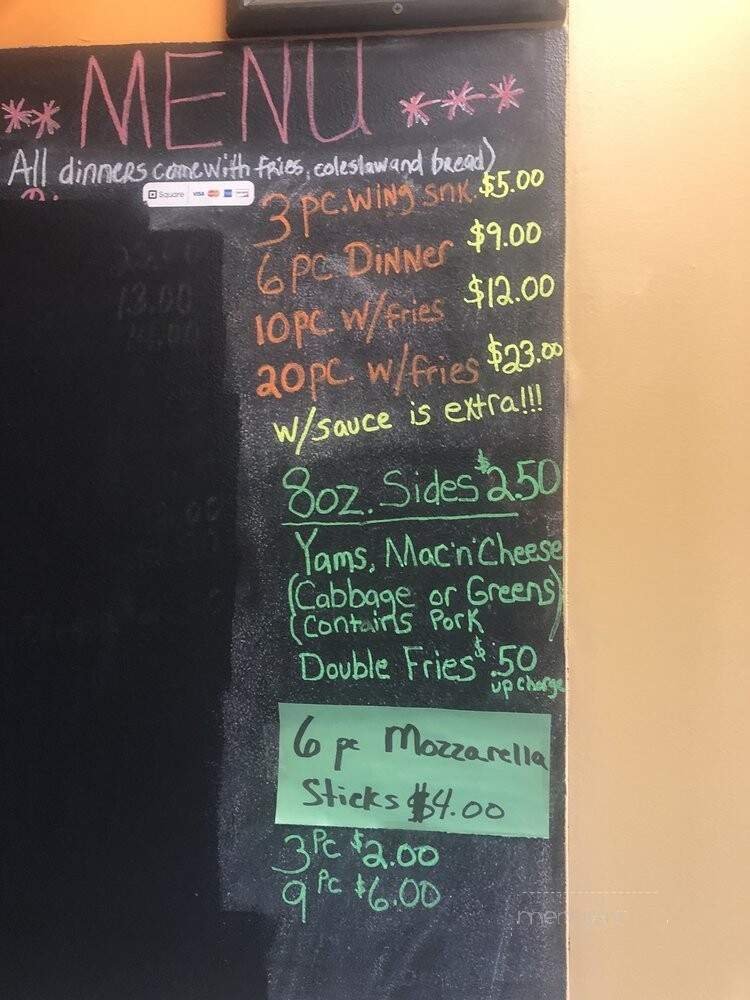 ** MENU ***
All dinners come with fries, coleslaw and bread)
Square VISA
3 pc. wing snk. $5.00
6 pc Dinner $9.00
10 pc w/fries $12.00
20 pc. w/fries $23.00
w/sauce is extra!!!
8oz. Sides $2.50
Yams, Mac'n'Cheese
(Cabbage or Greens)
(contains Pork
Double Fries $.50
up charge
6 pc Mozzarella
Sticks $4.00
3 Pc $2.00
9 Pc $6.00
13.00